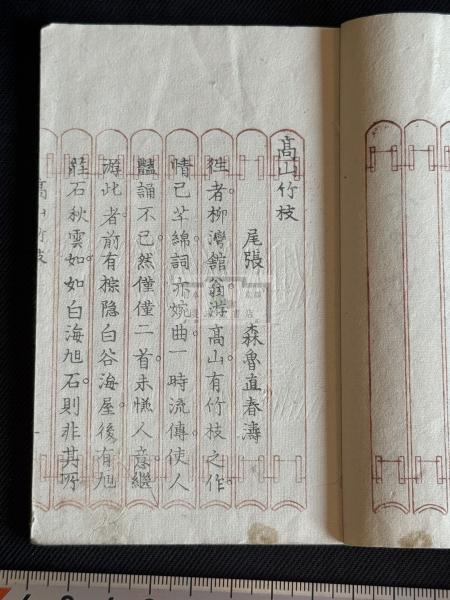 高山竹枝
尾張 森魯直春濤
徃者柳灣舘翁游高山有竹枝之作。
情已芊綿詞亦婉曲一時流傳使人
豔誦不已然僅僅二首未愜人意繼
游此者前有棕隐白谷海屋後有旭
莊石秋雲如如白海旭石則非其所
高山竹枝